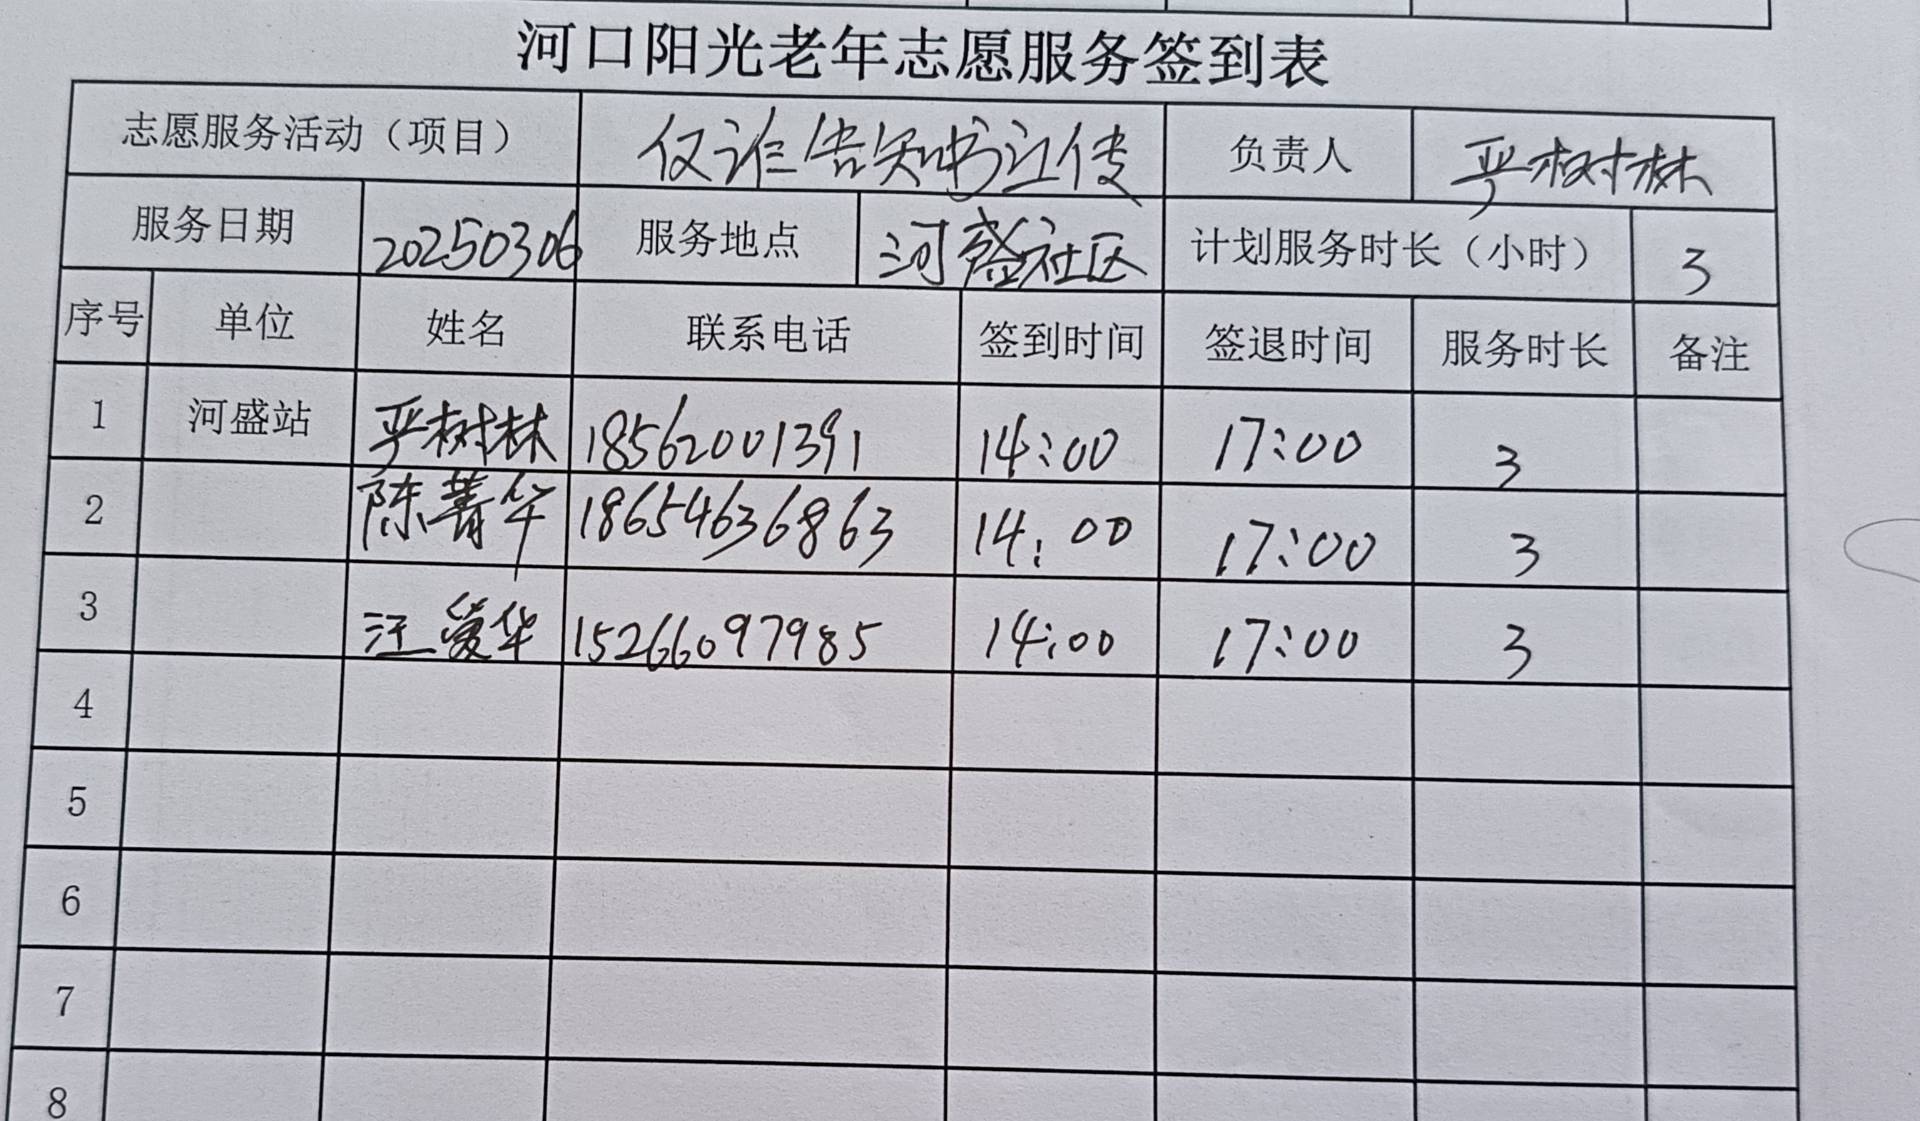 河口阳光老年志愿服务签到表
志愿服务活动（项目） 告知书 传 负责人 严树林
服务日期 20250306 服务地点 河盛社区 计划服务时长（小时） 3
序号 单位 姓名 联系电话 签到时间 签退时间 服务时长 备注
1 河盛站 严树林 18562001391 14:00 17:00 3
2 陈菁华 18654636863 14:00 17:00 3
3 汪爱华 15266097985 14:00 17:00 3
4
5
6
7
8